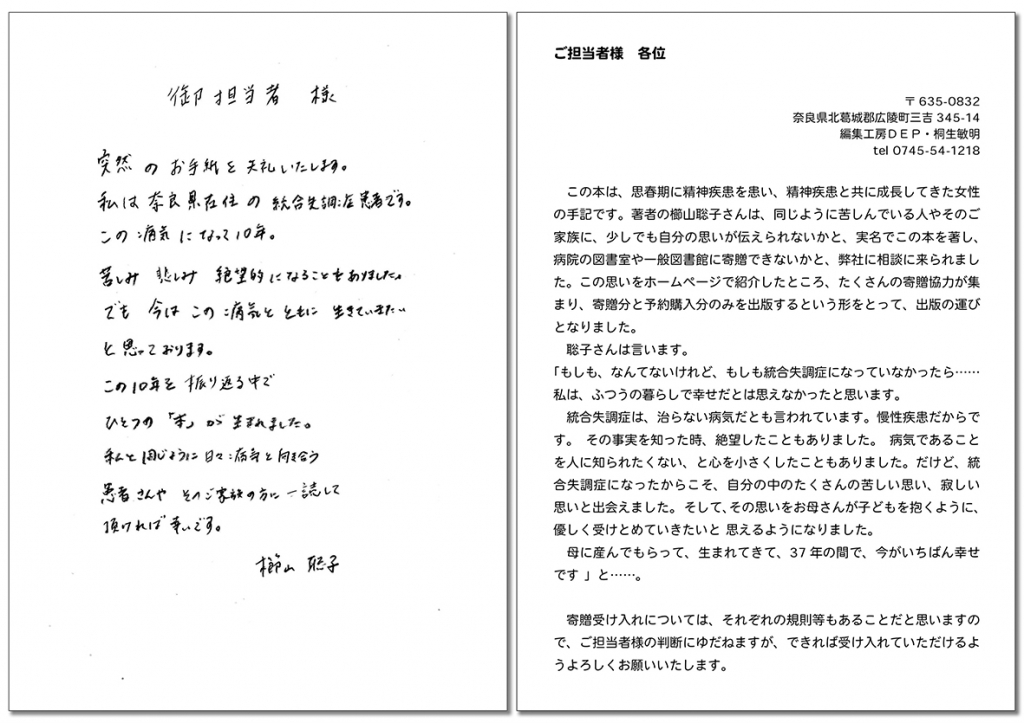 御担当者 様
突然 の お手紙を 失礼いたします。
私は 奈良県在住の 統合失調症患者です。
この 病気 に なって 10年。
苦しみ 悲しみ 絶望的に なることも ありました。
でも 今は この 病気と ともに 生きていきたい
と 思っております。
この10年を 振り返る中で
ひとつの 「本」が 生まれました。
私と 同じように 日々 病気と 向き合う
患者さんや そのご家族の方に 一読して
頂ければ 幸いです。
櫛山 聡子
ご担当者様 各位
〒 635-0832
奈良県北葛城郡広陵町三吉 345-14
編集工房DEP・桐生敏明
tel 0745-54-1218
この本は、思春期に精神疾患を患い、精神疾患と共に成長してきた女性
の手記です。著者の櫛山聡子さんは、同じように苦しんでいる人やそのご
家族に、少しでも自分の思いが伝えられないかと、実名でこの本を著し、
病院の図書室や一般図書館に寄贈できないかと、弊社に相談に来られまし
た。この思いをホームページで紹介したところ、たくさんの寄贈協力が集
まり、寄贈分と予約購入分のみを出版するという形をとって、出版の運び
となりました。
聡子さんは言います。
「もしも、なんてないけれど、もしも統合失調症になっていなかったら……
私は、ふつうの暮らしで幸せだとは思えなかったと思います。
統合失調症は、治らない病気だとも言われています。慢性疾患だからで
す。 その事実を知った時、絶望したこともありました。 病気であること
を人に知られたくない、と心を小さくしたこともありました。だけど、統
合失調症になったからこそ、自分の中のたくさんの苦しい思い、寂しい
思いと出会えました。そして、その思いをお母さんが子どもを抱くように、
優しく受けとめていきたいと 思えるようになりました。
母に産んでもらって、生まれてきて、37 年の間で、今がいちばん幸せ
です 」と……。
寄贈受け入れについては、それぞれの規則等もあることだと思いますの
で、ご担当者様の判断にゆだねますが、できれば受け入れていただけるよ
うよろしくお願いいたします。